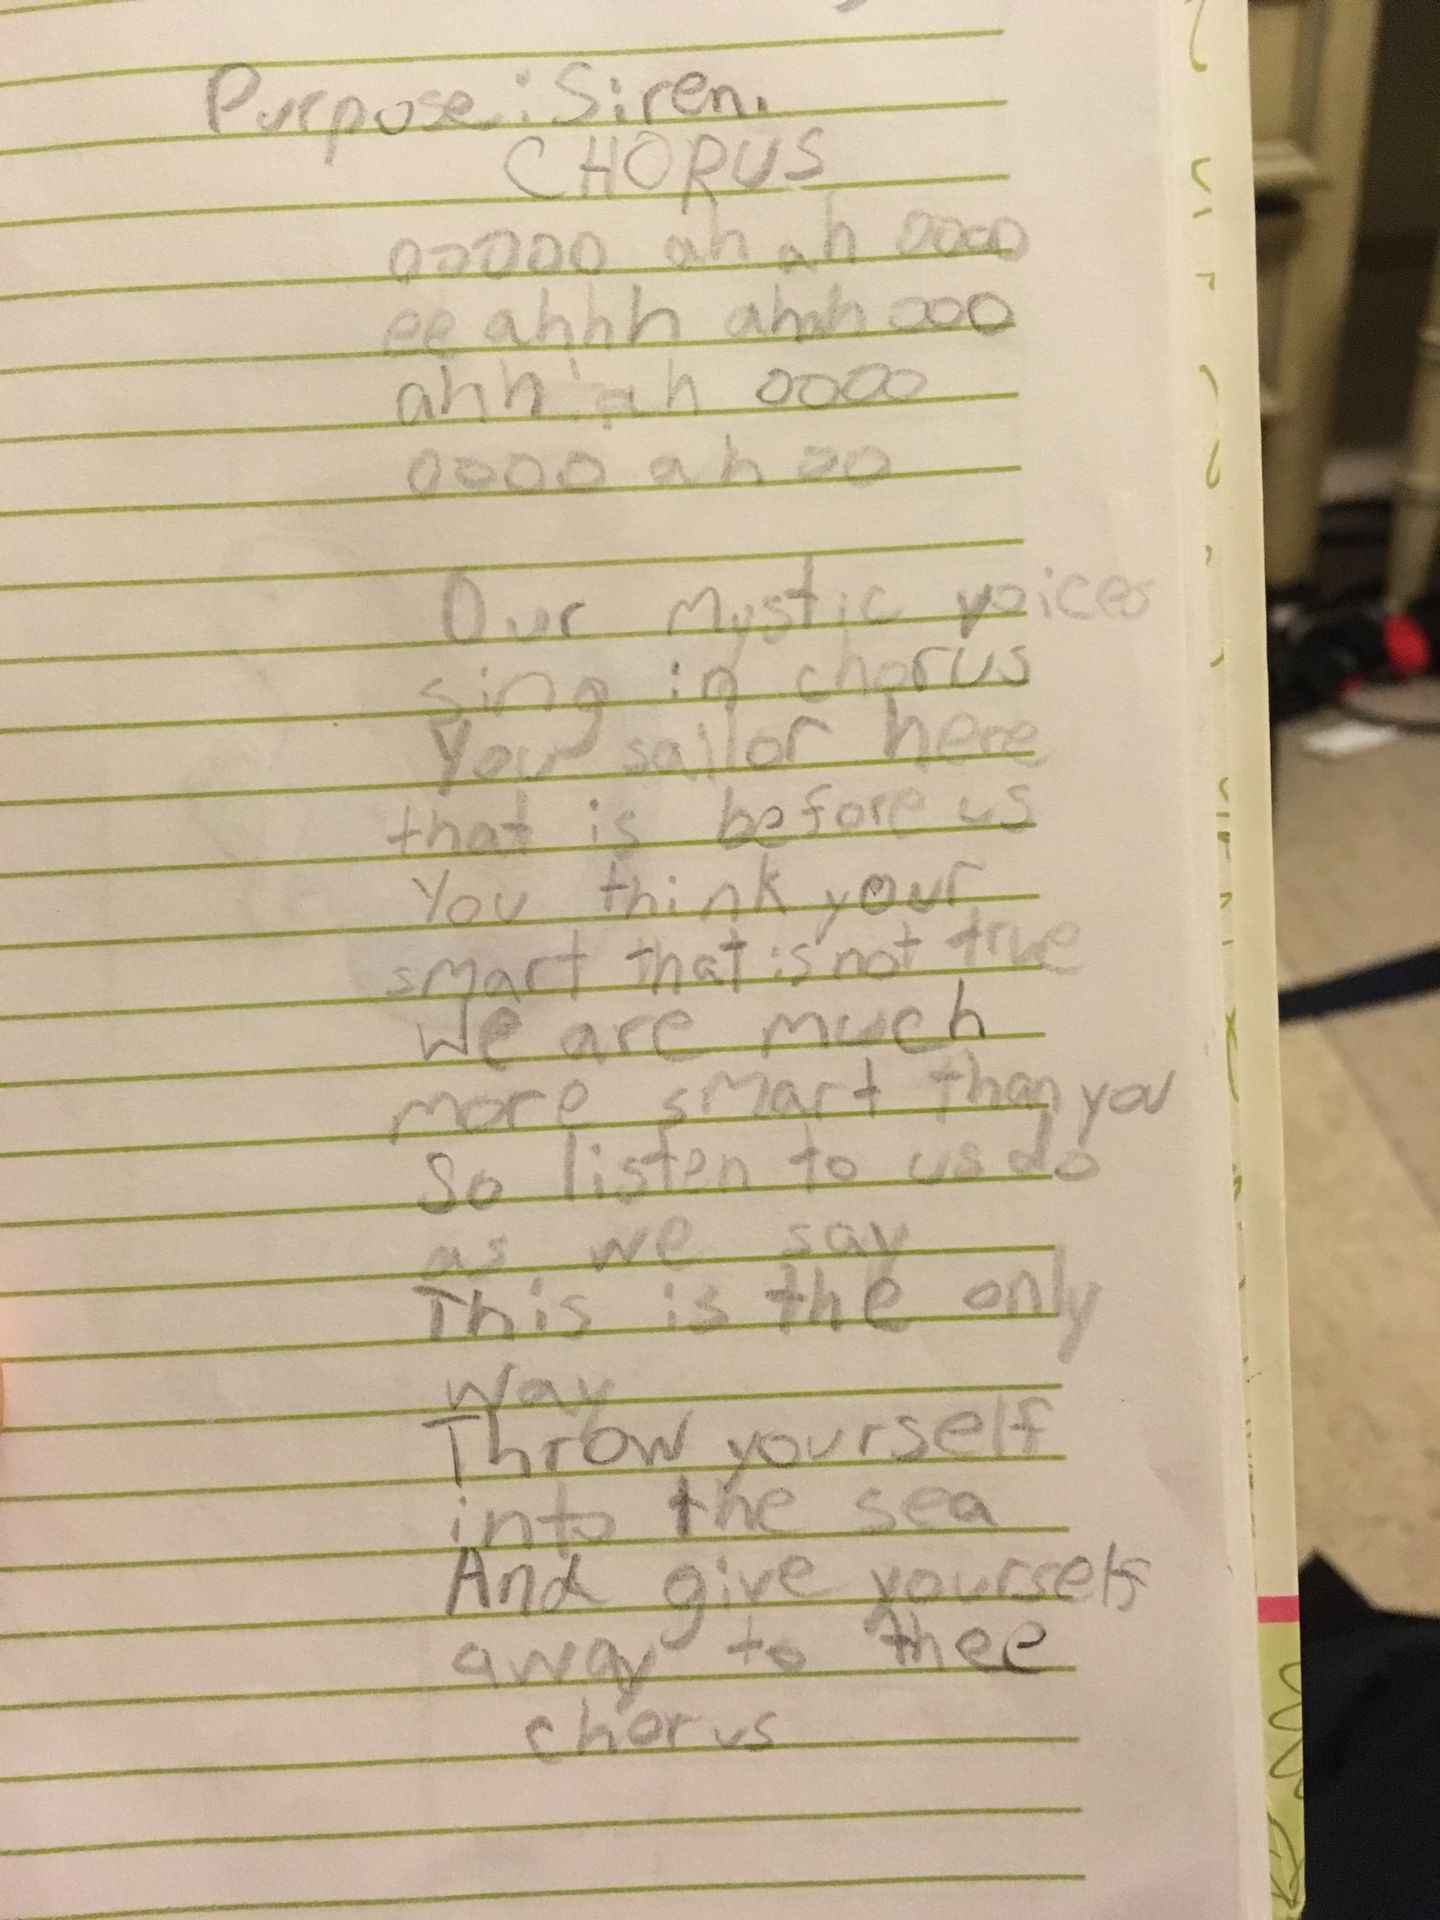 Purpose: Siren.
CHORUS
ooooo ah ah oooo
ee ahhh ahhh ooo
ahh ah oooo
oooo ah oo
Our mystic voices
sing in chorus
You sailor here
that is before us
You think your
smart that is not true
We are much
more smart than you
So listen to us do
as we say
This is the only
way
Throw yourself
into the sea
And give yourself
away to thee
chorus